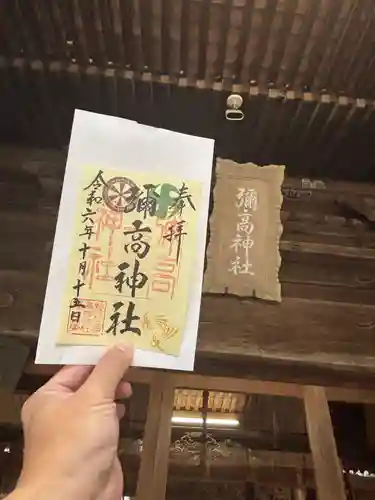 奉拝
彌高神社
令和六年十月十五日
彌高神社